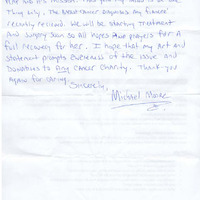 Tiny Lily. The breast cancer diagnosis my fianceé
recently received. We will be starting treatment
and surgery soon so all hopes and prayers for a
full recovery for her. I hope that my Art and
statement prompts awareness of the issue and
donations to Any cancer charity. Thank-you
again for caring.
Sincerely,
Michael